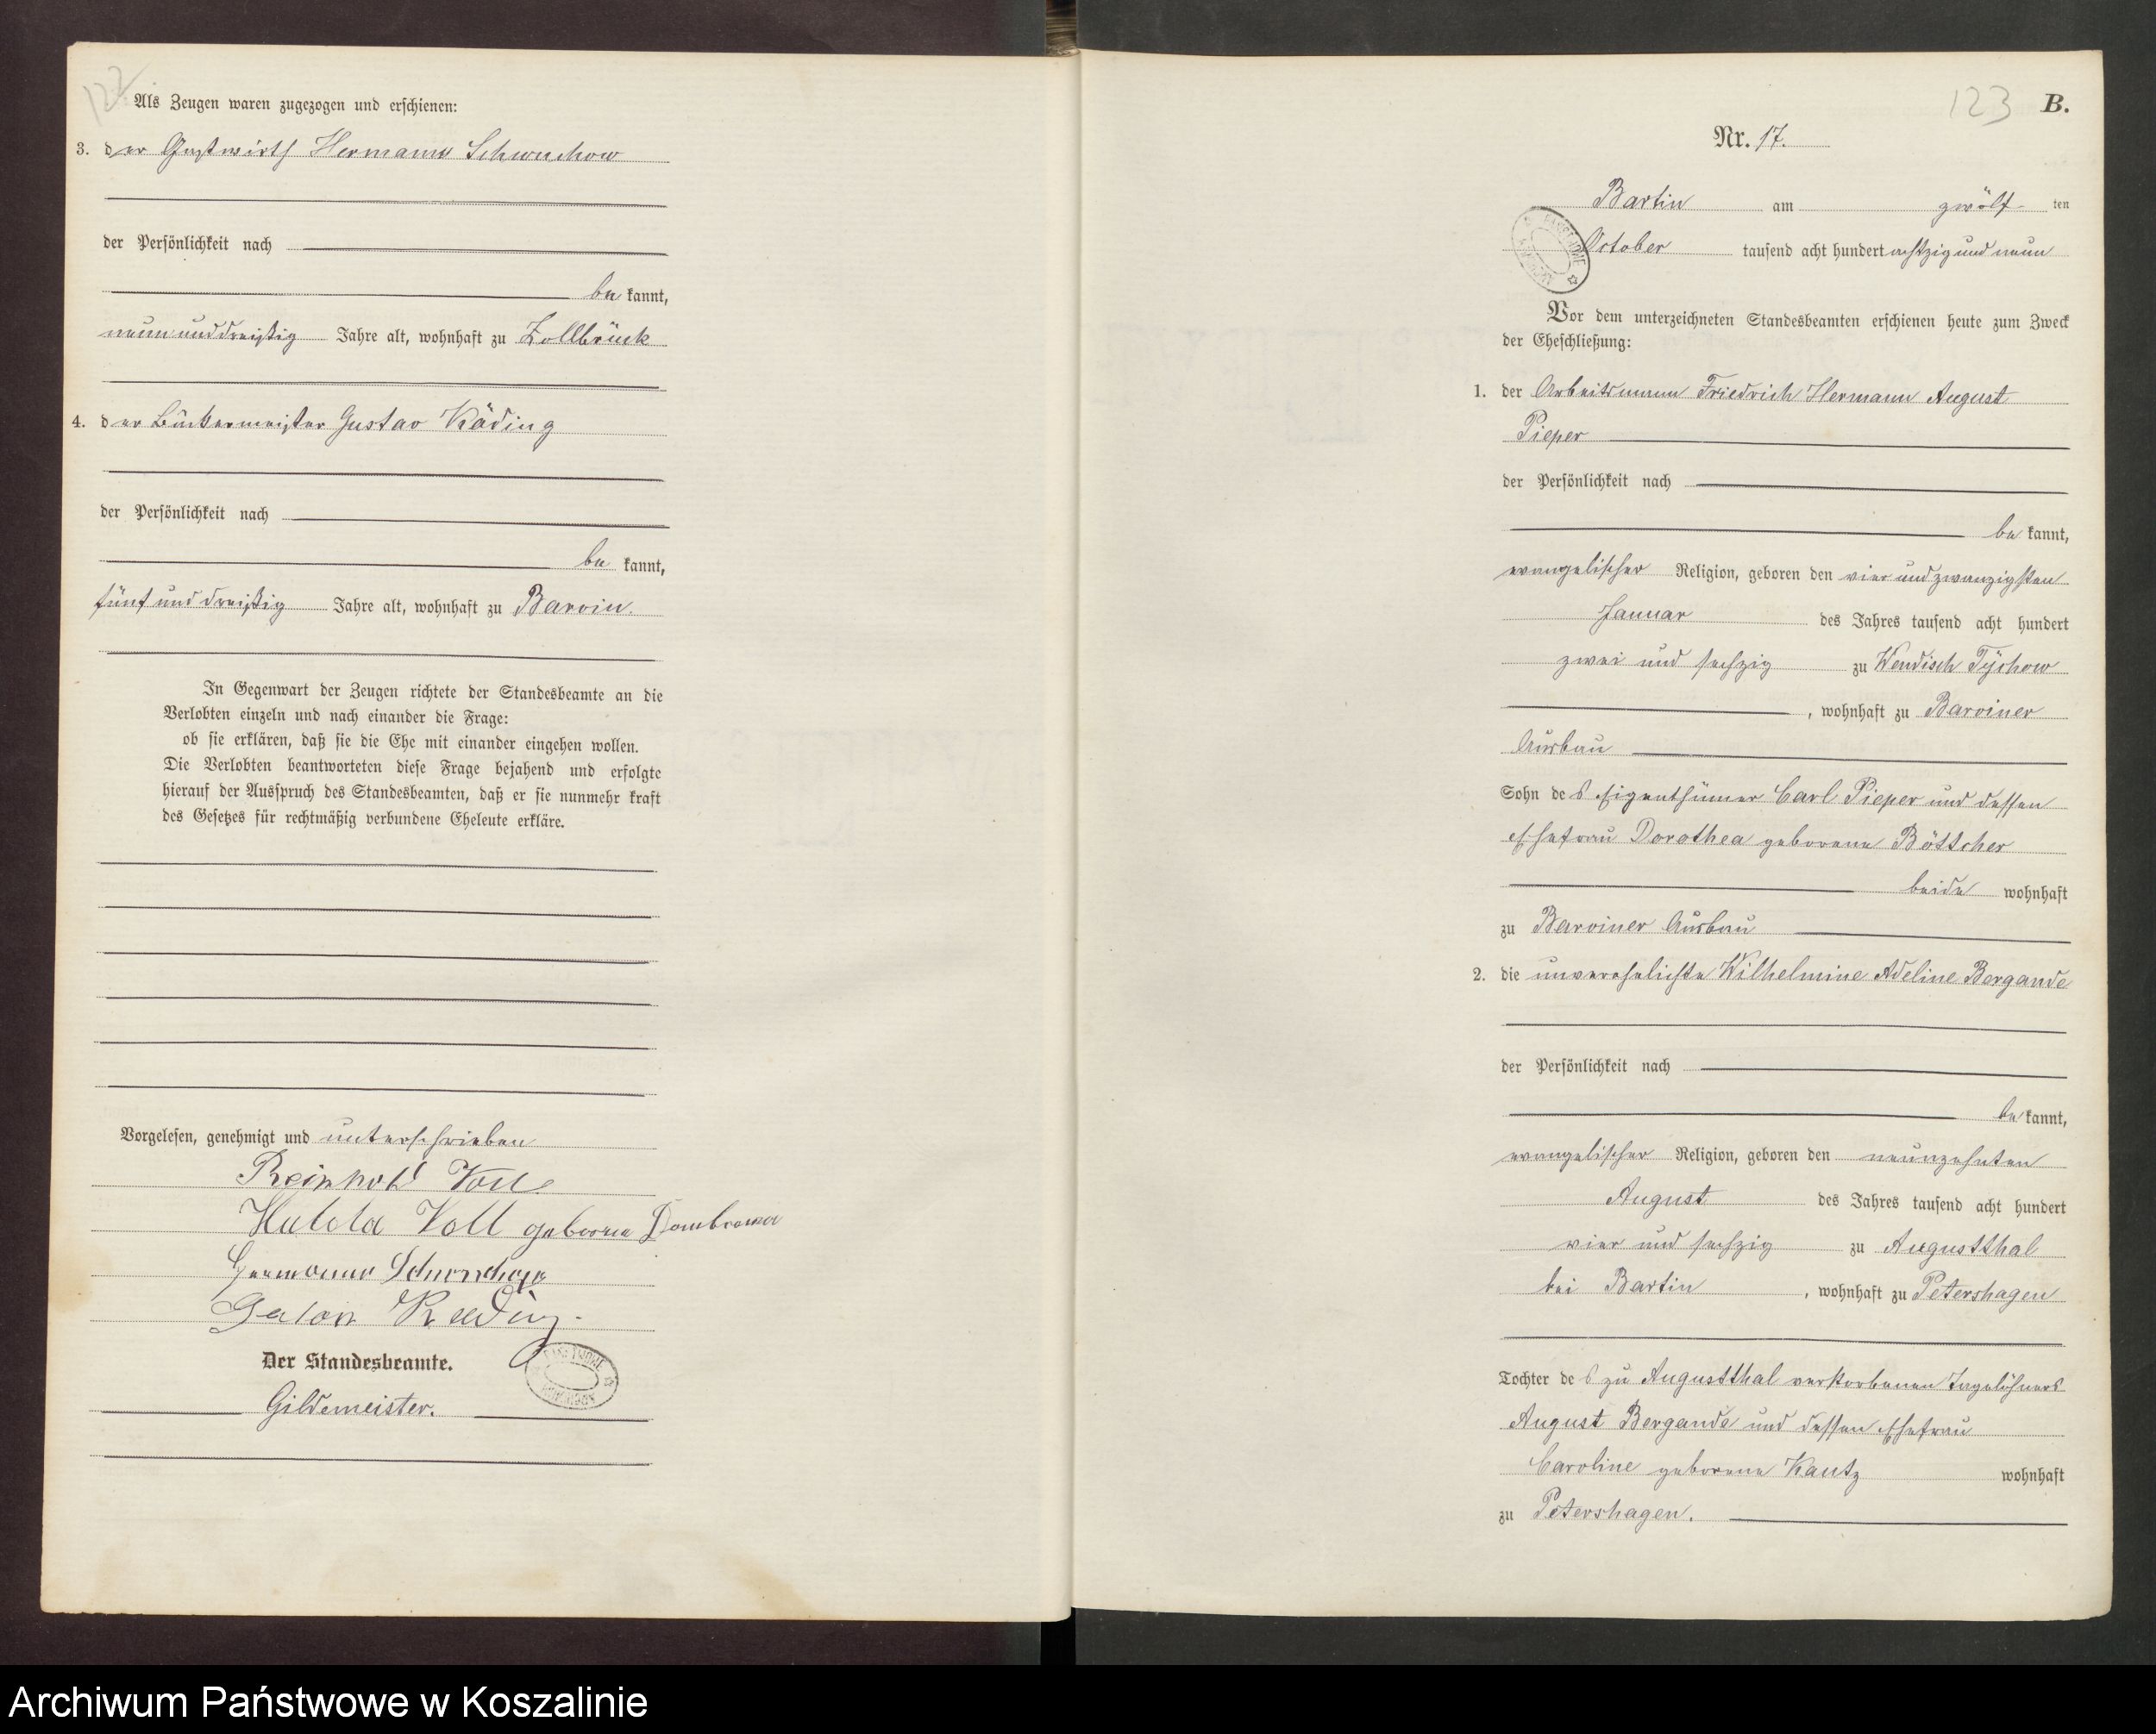 122
Als Zeugen waren zugezogen und erschienen:
3. der Gastwirth Hermann Schwuchow
der Persönlichkeit nach
be kannt,
neun und dreißig Jahre alt, wohnhaft zu Zollbrück
4. der Bäckermeister Gustav Käding
der Persönlichkeit nach
be kannt,
fünf und dreißig Jahre alt, wohnhaft zu Barvin.
In Gegenwart der Zeugen richtete der Standesbeamte an die
Verlobten einzeln und nach einander die Frage:
ob sie erklären, daß sie die Ehe mit einander eingehen wollen.
Die Verlobten beantworteten diese Frage bejahend und erfolgte
hierauf der Ausspruch des Standesbeamten, daß er sie nunmehr kraft
des Gesetzes für rechtmäßig verbundene Eheleute erkläre.
Vorgelesen, genehmigt und unterschrieben
Reinhold Voll
Hulda Voll geborne
Hermann Schwuchow
Käding.
Der Standesbeamte.
Gildemeister.
123 B.
Nr. 17.
Bartin am zwölf ten
October tausend acht hundert achtzig und neun
Vor dem unterzeichneten Standesbeamten erschienen heute zum Zweck
der Eheschließung:
1. der Arbeitsmann Friedrich Hermann August
Pieper
der Persönlichkeit nach
be kannt,
evangelischer Religion, geboren den vier und zwanzigsten
Januar des Jahres tausend acht hundert
zwei und sechzig zu Wendisch Tychow
, wohnhaft zu Barviner
Ausbau
Sohn des Eigenthümer Carl Pieper und dessen
Ehefrau Dorothea geborene Böttcher
beide wohnhaft
zu Barviner Ausbau
2. die unverehelichte Wilhelmine Adeline Bergande
der Persönlichkeit nach
be kannt,
evangelischer Religion, geboren den neunzehnten
August des Jahres tausend acht hundert
vier und sechzig zu Augustthal
bei Bartin , wohnhaft zu Petershagen
Tochter des zu Augustthal verstorbenen Tagelöhners
August Bergande und dessen Ehefrau
Caroline geborene Kautz wohnhaft
zu Petershagen.
Archiwum Państwowe w Koszalinie